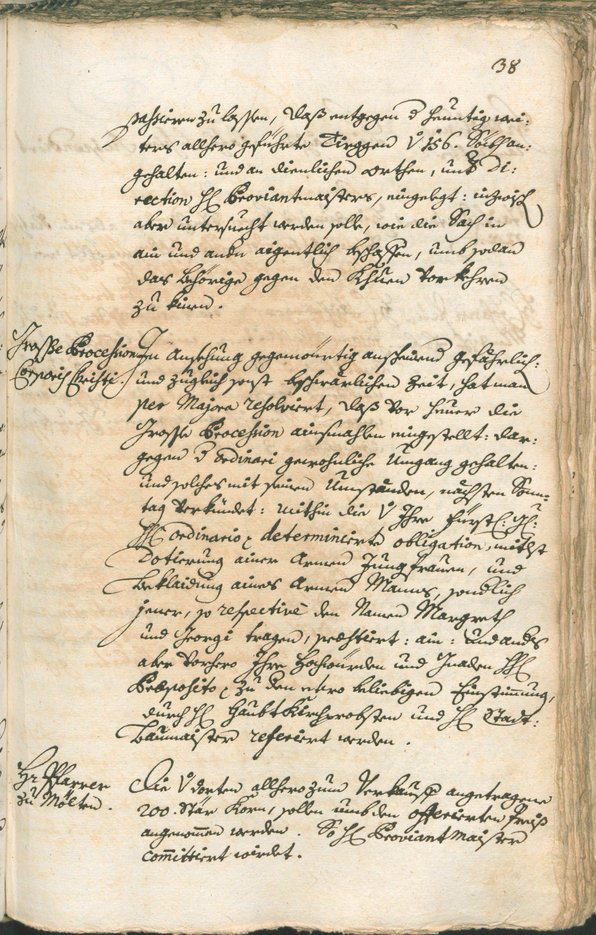 38
passieren zu lassen, daß entgegen d heuntig wei:
ters allhero geführte Tirggen V 156. Söckh an:
gehalten: und an dienlichen orthen, unter Di:
rection H: Proviantmaisters, eingelegt: inzwisch
aber untersucht werden solle, wie die Sach in
ain und ander aigentlich beschaffen, umb sodan
das behörige gegen den Khuen vorkehren
zu künen.
Grosse Procession
Corporis Christi.
In Ansehung gegenwürtig anscheinend gefährlich:
und zugleich sonst beschwärlichen Zeit, hat man
per Majora resolviert, daß vor heuer die
Grosse Procession ainsmahlen eingestellt: dar:
gegen d ordinari gewohnliche Umgang gehalten:
und solches mit seinen Umständen, nächsten Sonn:
tag verkündet: mithin die V Ihro Fürstl: Gn:
H: ordinario determinierte obligation, mithst
Dotierung ainer Armen Jungfrauen, und
Beklaidung aines Armen Manns, sondlich
jener, so respective den Namen Margreth
und Georgi tragen, præstiert: ain: und anders
aber vorhero Ihro Hochwürden und Gnaden H:
Præposito, zu den etwo beliebigen Einstimmung,
durch H: Haubt Kirchprobsten und H: Stadt:
Baumaister referiert werden.
Hr: Pfarrer
zu Mölten.
Die V dorten allhero zum Verkauf angetragene
200. Stär Korn, sollen umb den offerierten Preiß
angenommen werden. So H: Proviantmaister
committiert wirdet.